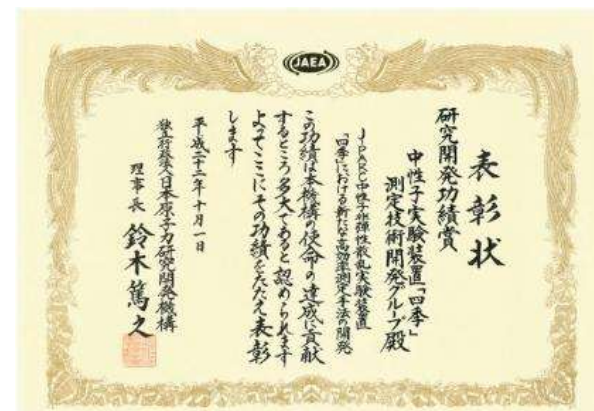 JAEA
表彰状
研究開発功績賞
中性子実験装置「四季」
測定技術開発グループ殿
J-PARC中性子非弾性散乱実験装置
「四季」における新たな高効率測定手法の開発
この功績は本機構の使命の達成に貢献
するところ多大であると認められます
よってここにその功績をたたえ表彰
します
平成二十二年十月一日
独立行政法人日本原子力研究開発機構
理事長 鈴木篤之